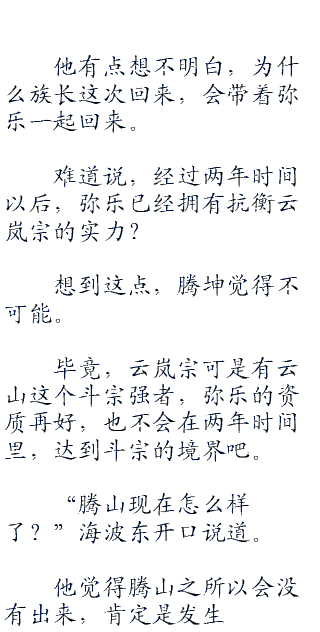 他有点想不明白，为什
么族长这次回来，会带着弥
乐一起回来。
难道说，经过两年时间
以后，弥乐已经拥有抗衡云
岚宗的实力？
想到这点，腾坤觉得不
可能。
毕竟，云岚宗可是有云
山这个斗宗强者，弥乐的资
质再好，也不会在两年时间
里，达到斗宗的境界吧。
“腾山现在怎么样
了？”海波东开口说道。
他觉得腾山之所以会没
有出来，肯定是发生